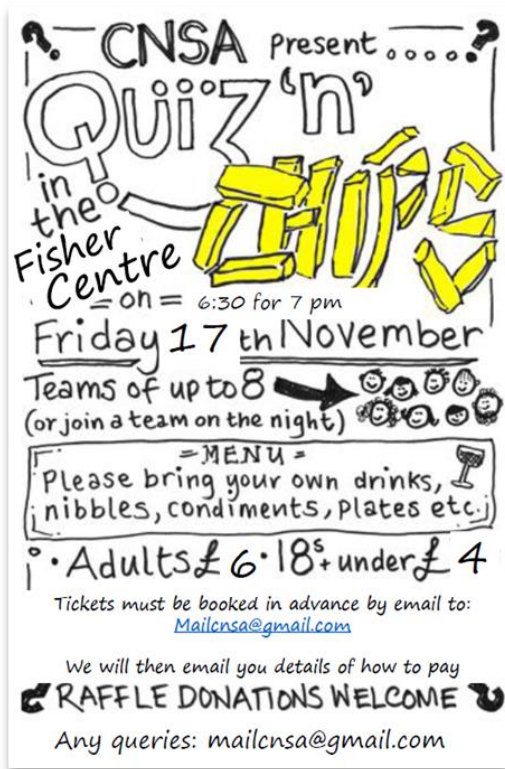 CNSA Present ....
Quiz 'n'
CHIPS
in
the
Fisher
Centre
= on = 6:30 for 7 pm
Friday 17 th November
Teams of up to 8
(or join a team on the night)
= MENU =
Please bring your own drinks,
nibbles, condiments, plates etc.
• Adults £ 6 • 18s + under £ 4
Tickets must be booked in advance by email to:
Mailcnsa@gmail.com
We will then email you details of how to pay
RAFFLE DONATIONS WELCOME
Any queries: mailcnsa@gmail.com